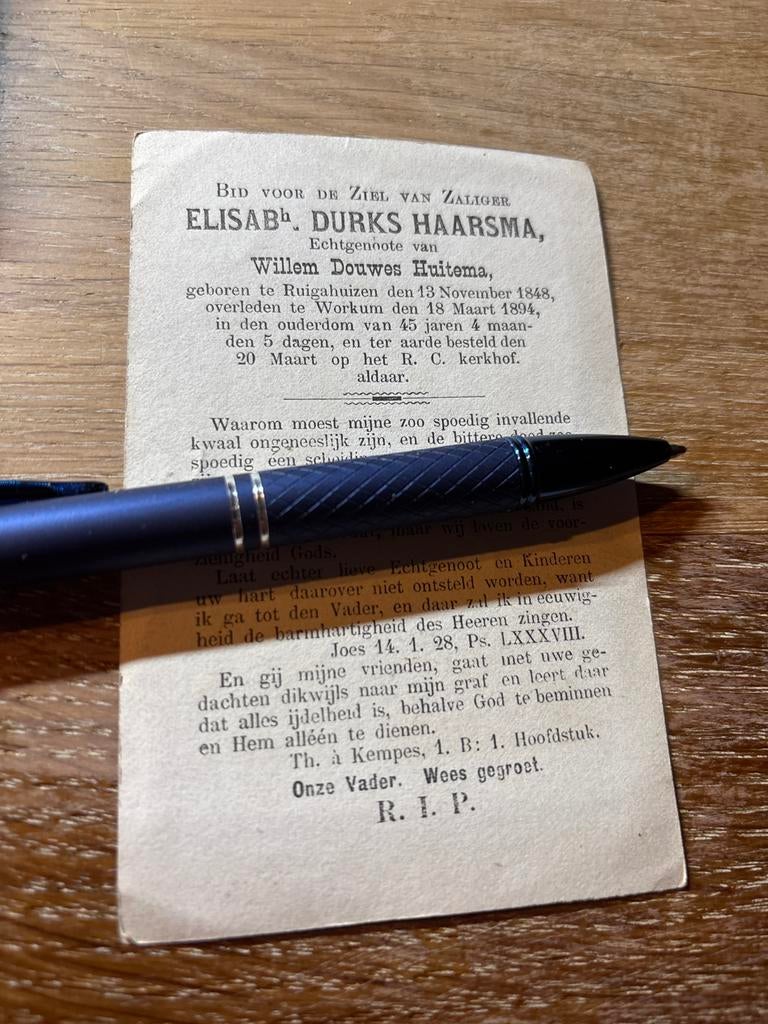 BID VOOR DE ZIEL VAN ZALIGER
ELISABh. DURKS HAARSMA,
Echtgenoote van
Willem Douwes Huitema,
geboren te Ruigahuizen den 13 November 1848,
overleden te Workum den 18 Maart 1894,
in den ouderdom van 45 jaren 4 maan-
den 5 dagen, en ter aarde besteld den
20 Maart op het R. C. kerkhof.
aldaar.
Waarom moest mijne zoo spoedig invallende
kwaal ongeneeslijk zijn, en de bittere dood zoo
spoedig een
is
maar wij loven de voor-
zienigheid Gods.
Laat echter lieve Echtgenoot en Kinderen
uw hart daarover niet ontsteld worden, want
ik ga tot den Vader, en daar zal ik in eeuwig-
heid de barmhartigheid des Heeren zingen.
Joes 14. 1. 28, Ps. LXXXVIII.
En gij mijne vrienden, gaat met uwe ge-
dachten dikwijls naar mijn graf en leert daar
dat alles ijdelheid is, behalve God te beminnen
en Hem alléén te dienen.
Th. à Kempes, 1. B: 1. Hoofdstuk.
Onze Vader. Wees gegroet.
R. I. P.